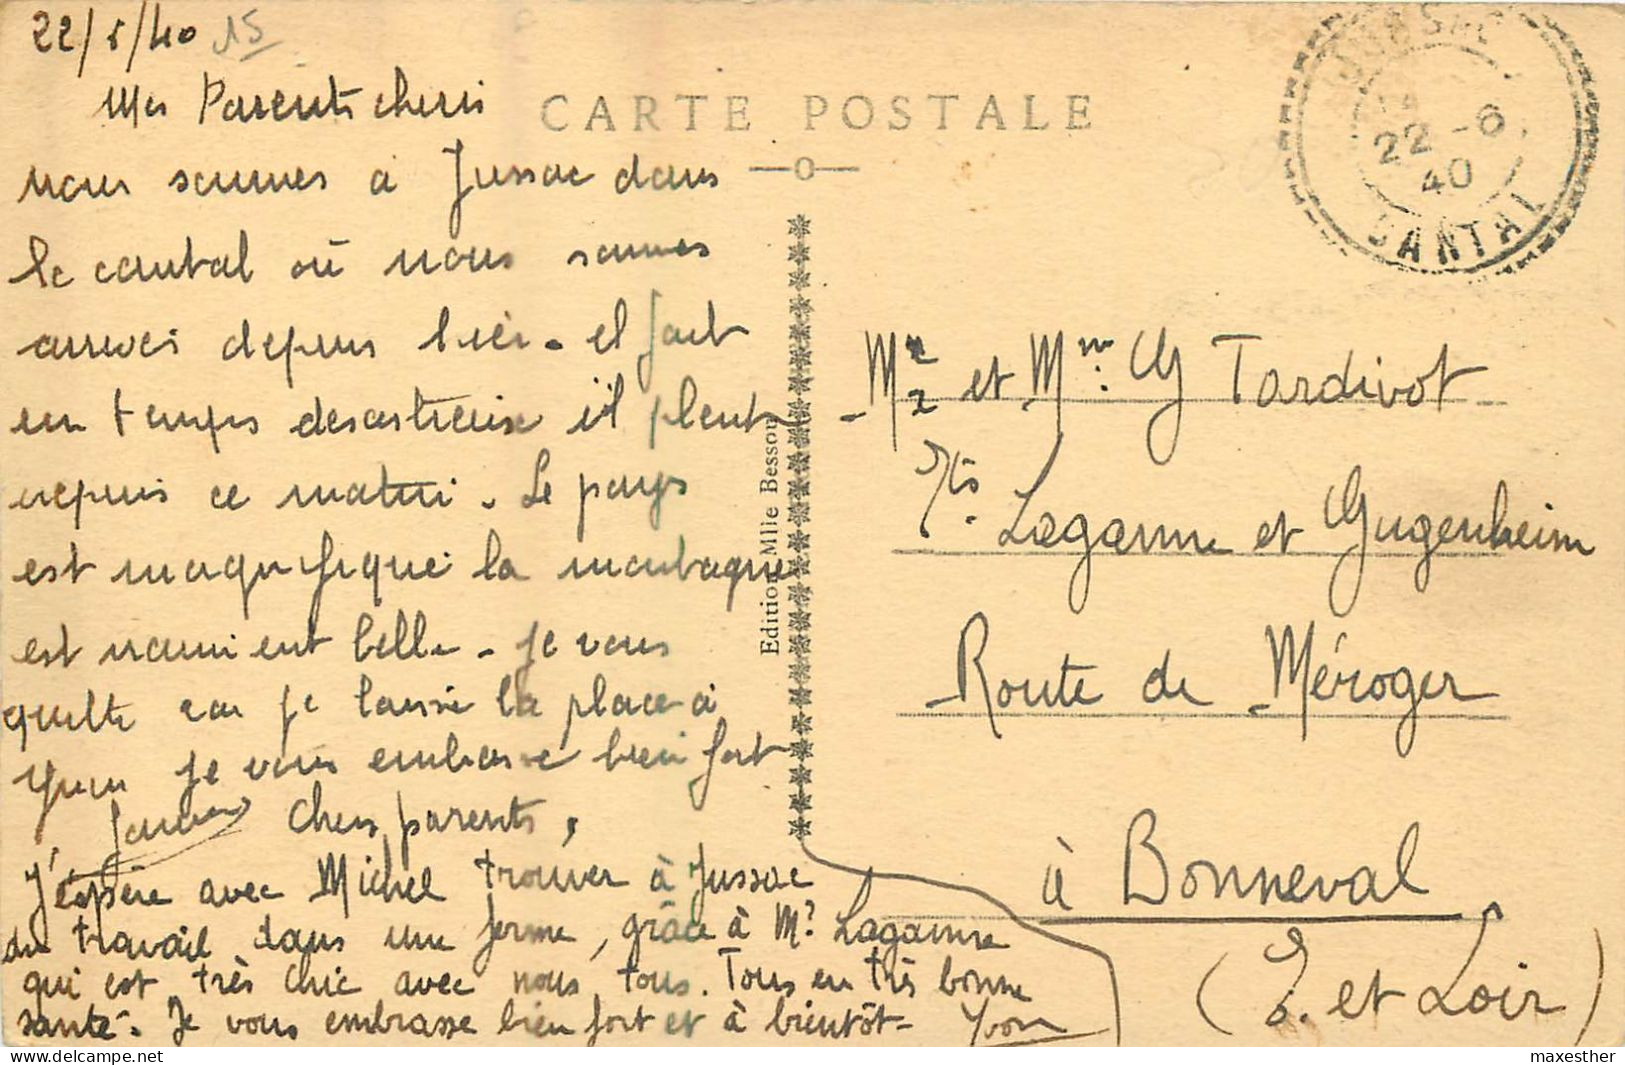 22/6/40 15
Mes Parents cheris
nous sommes à Jussac dans
le cantal où nous sommes
arrivés depuis hier. il fait
un temps desastreux il pleut
depuis ce matin. Le pays
est magnifique la montagne
est vraiment belle. Je vous
quitte car je laisse la place à
Yvon je vous embrasse bien fort
Chers parents,
J'éspère avec Michel trouver à Jussac
du travail dans une ferme, grâce à Mr Laganne
qui est très chic avec nous tous. Tous en très bonne
santé. Je vous embrasse bien fort et à bientôt. Yvon
CARTE POSTALE
Edition Mlle Bessou
JUSSAC
22 -6
40
CANTAL
Mr et Mme G Tardivot
Ets Laganne et Gugenheim
Route de Méroger
à Bonneval
(E. et Loir)
maxesther